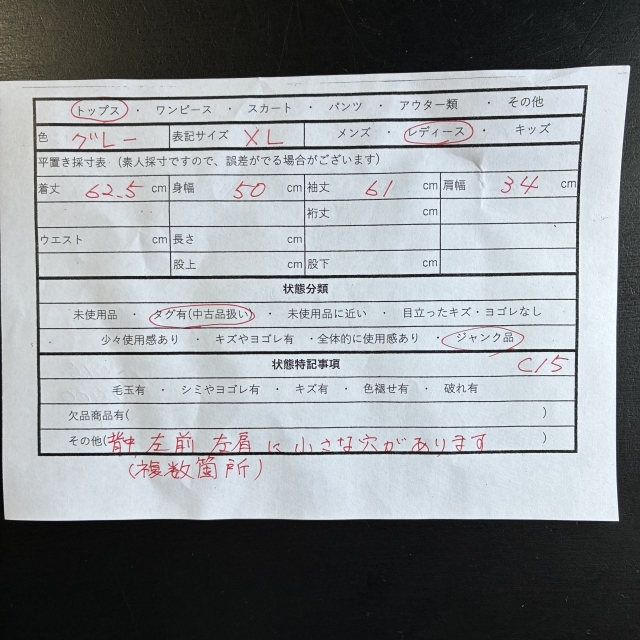 トップス ・ ワンピース ・ スカート ・ パンツ ・ アウター類 ・ その他
色 グレー 表記サイズ XL メンズ ・ レディース ・ キッズ
平置き採寸表(素人採寸ですので、誤差がでる場合がございます)
着丈 62.5 cm 身幅 50 cm 袖丈 61 cm 肩幅 34 cm
裄丈 cm
ウエスト cm 長さ cm
股上 cm 股下 cm
状態分類
未使用品 ・ タグ有(中古品扱い) ・ 未使用品に近い ・ 目立ったキズ・ヨゴレなし
少々使用感あり ・ キズやヨゴレ有 ・全体的に使用感あり ・ ジャンク品
状態特記事項 C15
毛玉有 ・ シミやヨゴレ有 ・ キズ有 ・ 色褪せ有 ・ 破れ有
欠品商品有( )
その他(背中,左前 左肩 に小さな穴があります )
(複数箇所)